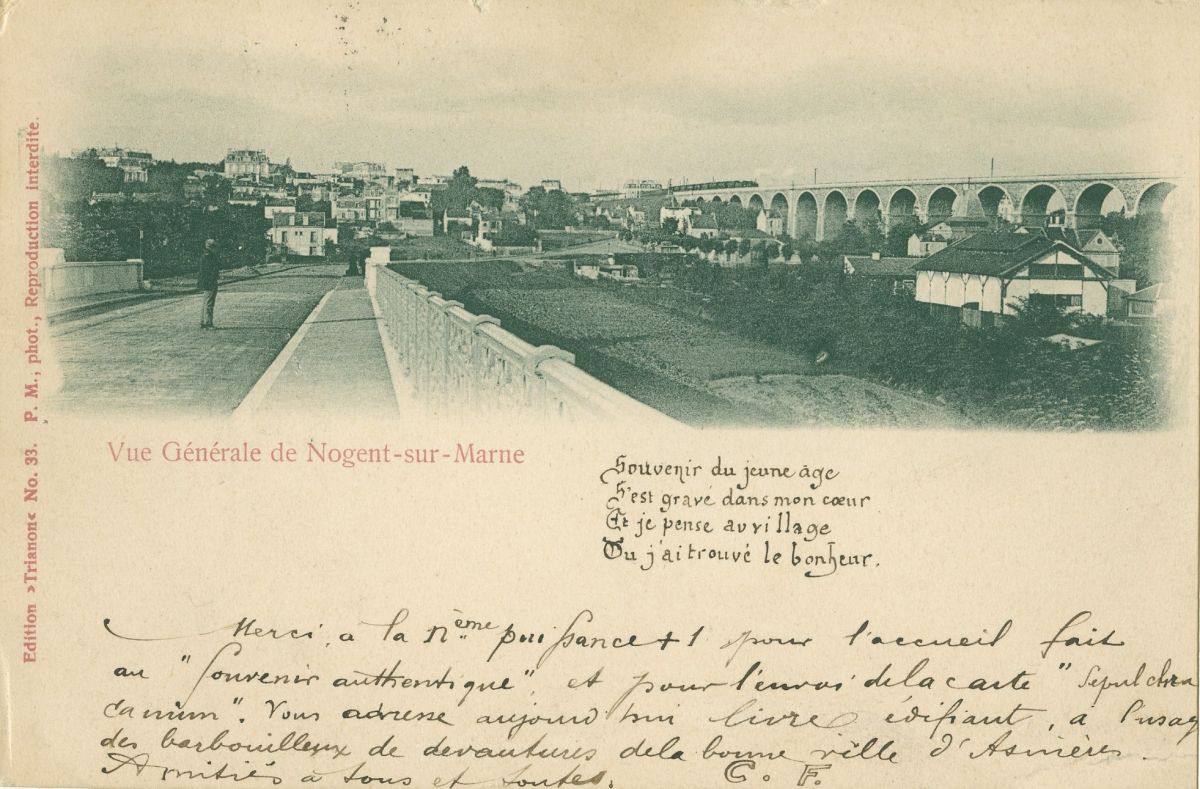 Edition »Trianon« No. 33. P. M., phot., Reproduction interdite.
Vue Générale de Nogent-sur-Marne
Souvenir du jeune âge
S'est gravé dans mon cœur
Et je pense au village
Ou j'ai trouvé le bonheur.
Merci, à la Nème puissance + 1 pour l'accueil fait
au "Souvenir authentique", et pour l'envoi de la carte "Sepulchra
canum". Vous adresse aujourd'hui livre édifiant, à l'usag
des barbouilleux de devantures de la bonne ville d'Asnières.
Amitiés à tous et toutes. C. F.